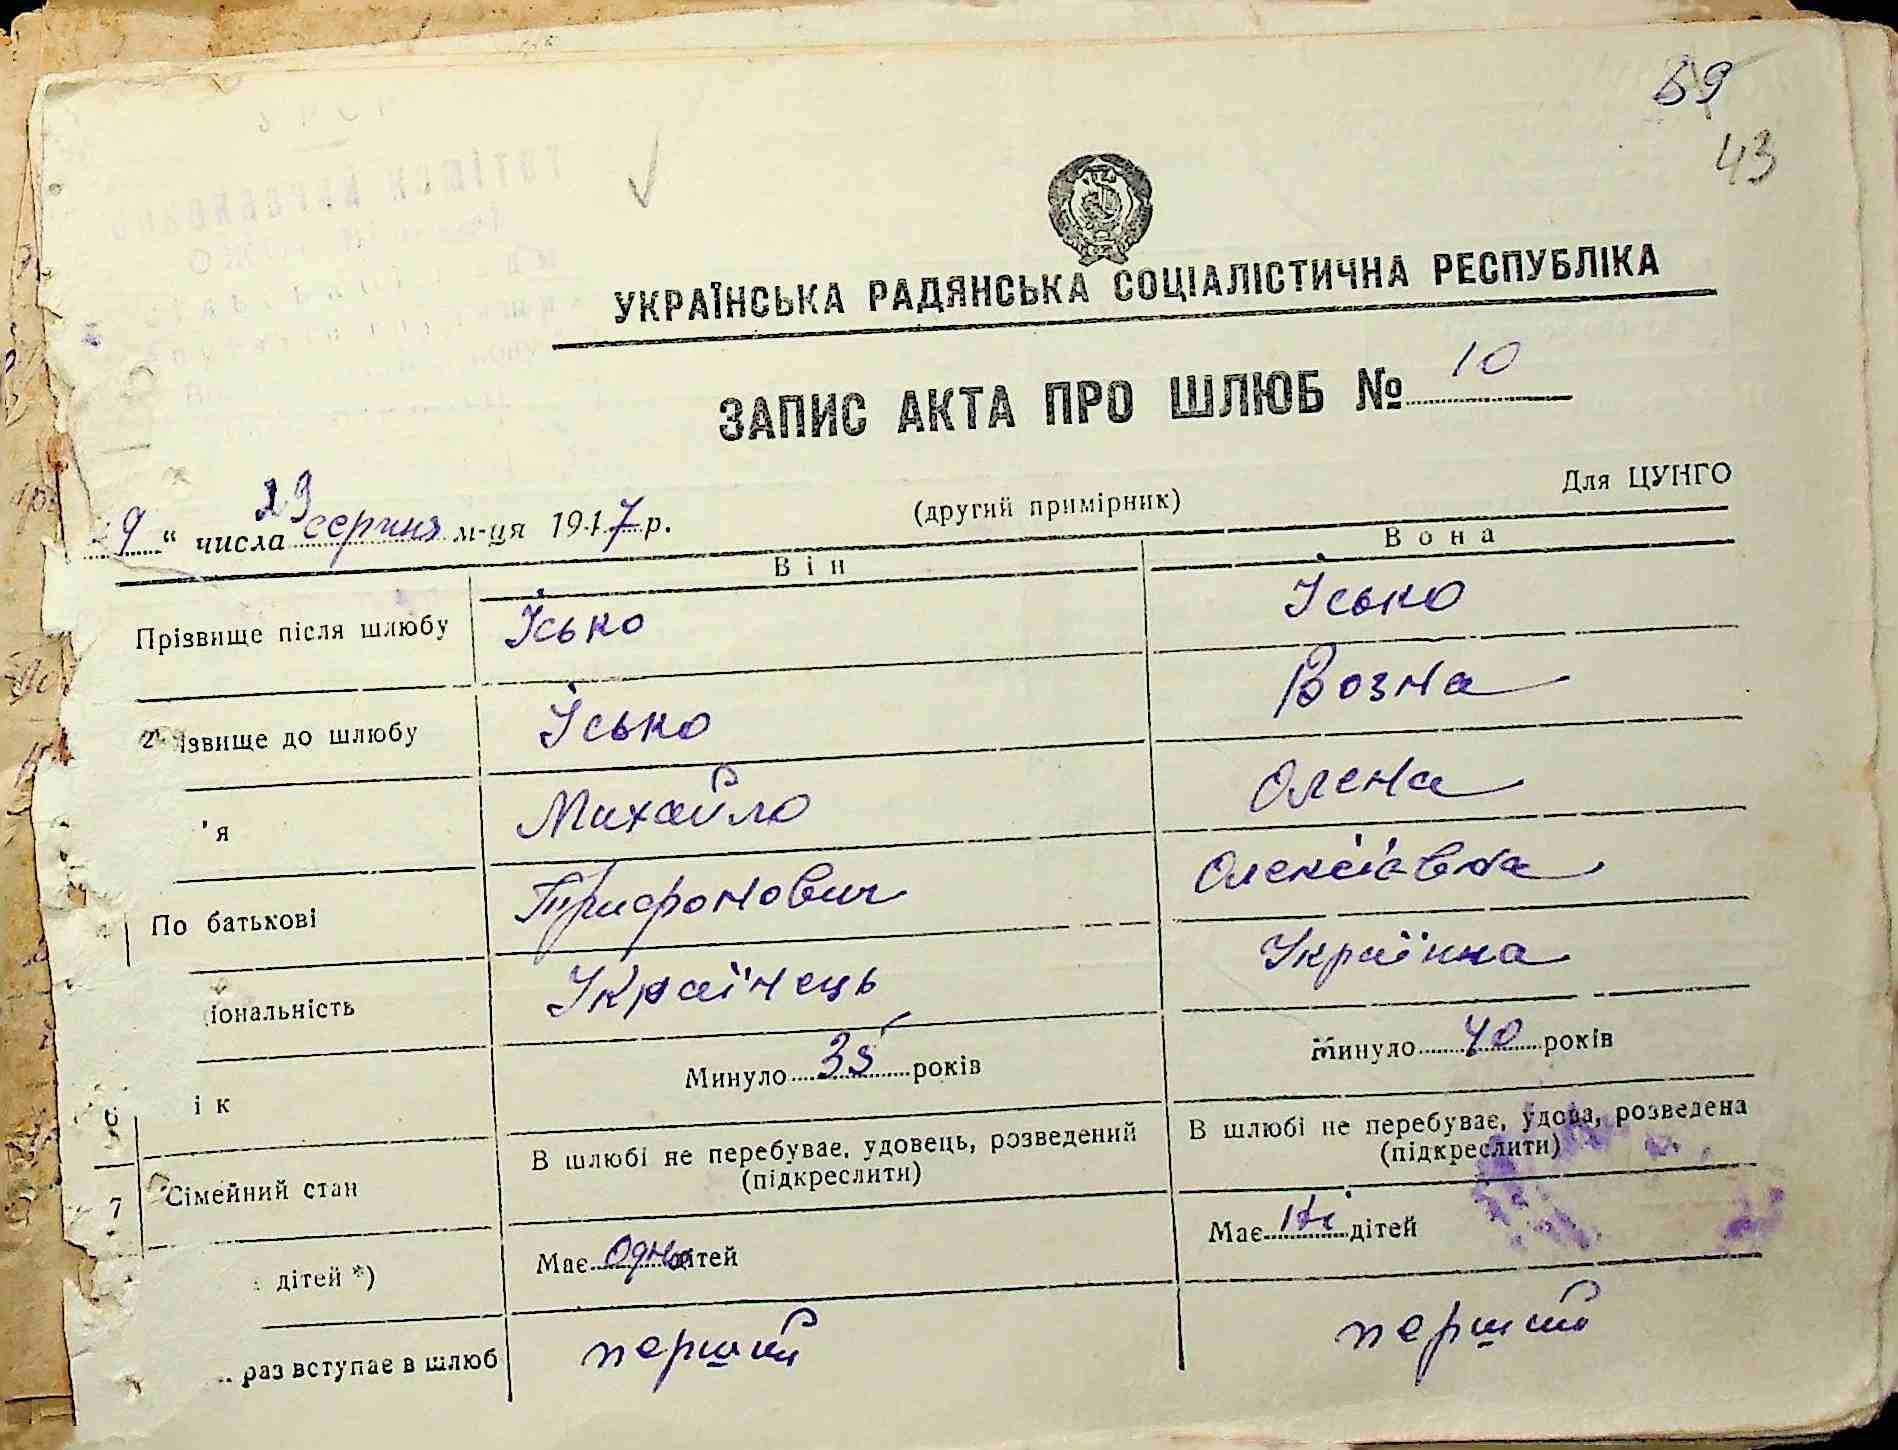 59
43
УКРАЇНСЬКА РАДЯНСЬКА СОЦІАЛІСТИЧНА РЕСПУБЛІКА
ЗАПИС АКТА ПРО ШЛЮБ № 10
Для ЦУНГО
(другий примірник)
29
9 " числа серпня м-ця 1947 р.
Він Вона
Прізвище після шлюбу Ісько Ісько
2 ізвище до шлюбу Ісько Возна
'я Михайло Олена
По батькові Трифонович Олексіавна
іональність Українець Українка
6 ік Минуло 35 років Минуло 40 років
7 Сімейний стан В шлюбі не перебуває, удовець, розведений (підкреслити) В шлюбі не перебуває, удова, розведена (підкреслити)
дітей *) Має одно дітей Має дітей
раз вступає в шлюб перший перший